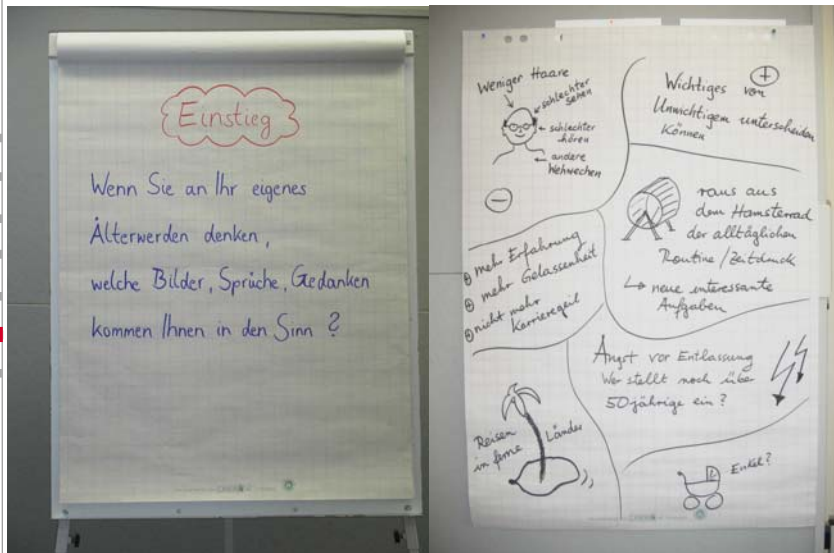 Einstieg
Wenn Sie an Ihr eigenes
Älterwerden denken,
welche Bilder, Sprüche, Gedanken
kommen Ihnen in den Sinn ?
Weniger Haare
schlechter
sehen
schlechter
hören
andere
Wehwechen
Wichtiges von
Unwichtigem unterscheiden
können
raus aus
dem Hamsterrad
der alltäglichen
Routine / Zeitdruck
↳ neue interessante
Aufgaben
⊕ mehr Erfahrung
⊕ mehr Gelassenheit
⊕ nicht mehr
karrieregeil
Angst vor Entlassung
Wer stellt noch über
50 jährige ein ?
Reisen
in ferne
Länder
Enkel ?